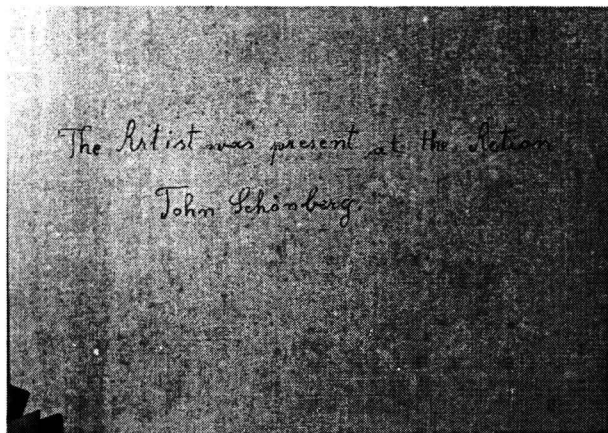 The Artist was present at the Action
John Schönberg.